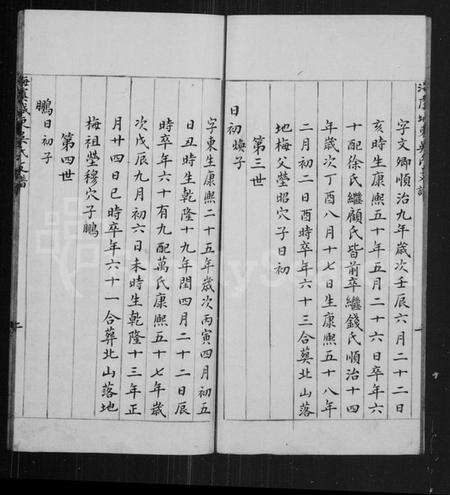 字文卿順治九年歲次壬辰六月二十二日
亥時生康熙五十年五月二十六日卒年六
十配徐氏繼顧氏皆前卒繼錢氏順治十四
年歲次丁酉八月十七日生康熙五十八年
二月初二日酉時卒年六十三合葬北山落
地梅父塋昭穴子日初
第三世
日初嫡子
字東生康熙二十五年歲次丙寅四月初五
日丑時生乾隆十九年閏四月二十二日辰
時卒年六十有九配萬氏康熙五十七年歲
次戊辰九月初六日未時生乾隆十三年正
月廿四日巳時卒年六十一合葬北山落地
梅祖塋穆穴子鵬
第四世
鵬日初子